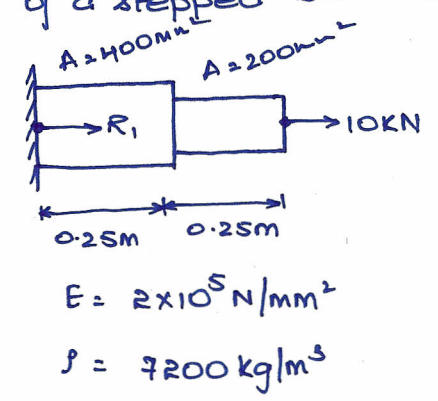 of a stepped
A=400mm²
A=200mm²
R₁
10KN
0.25m
0.25m
E = 2×10⁵ N/mm²
ρ = 7200 kg/m³